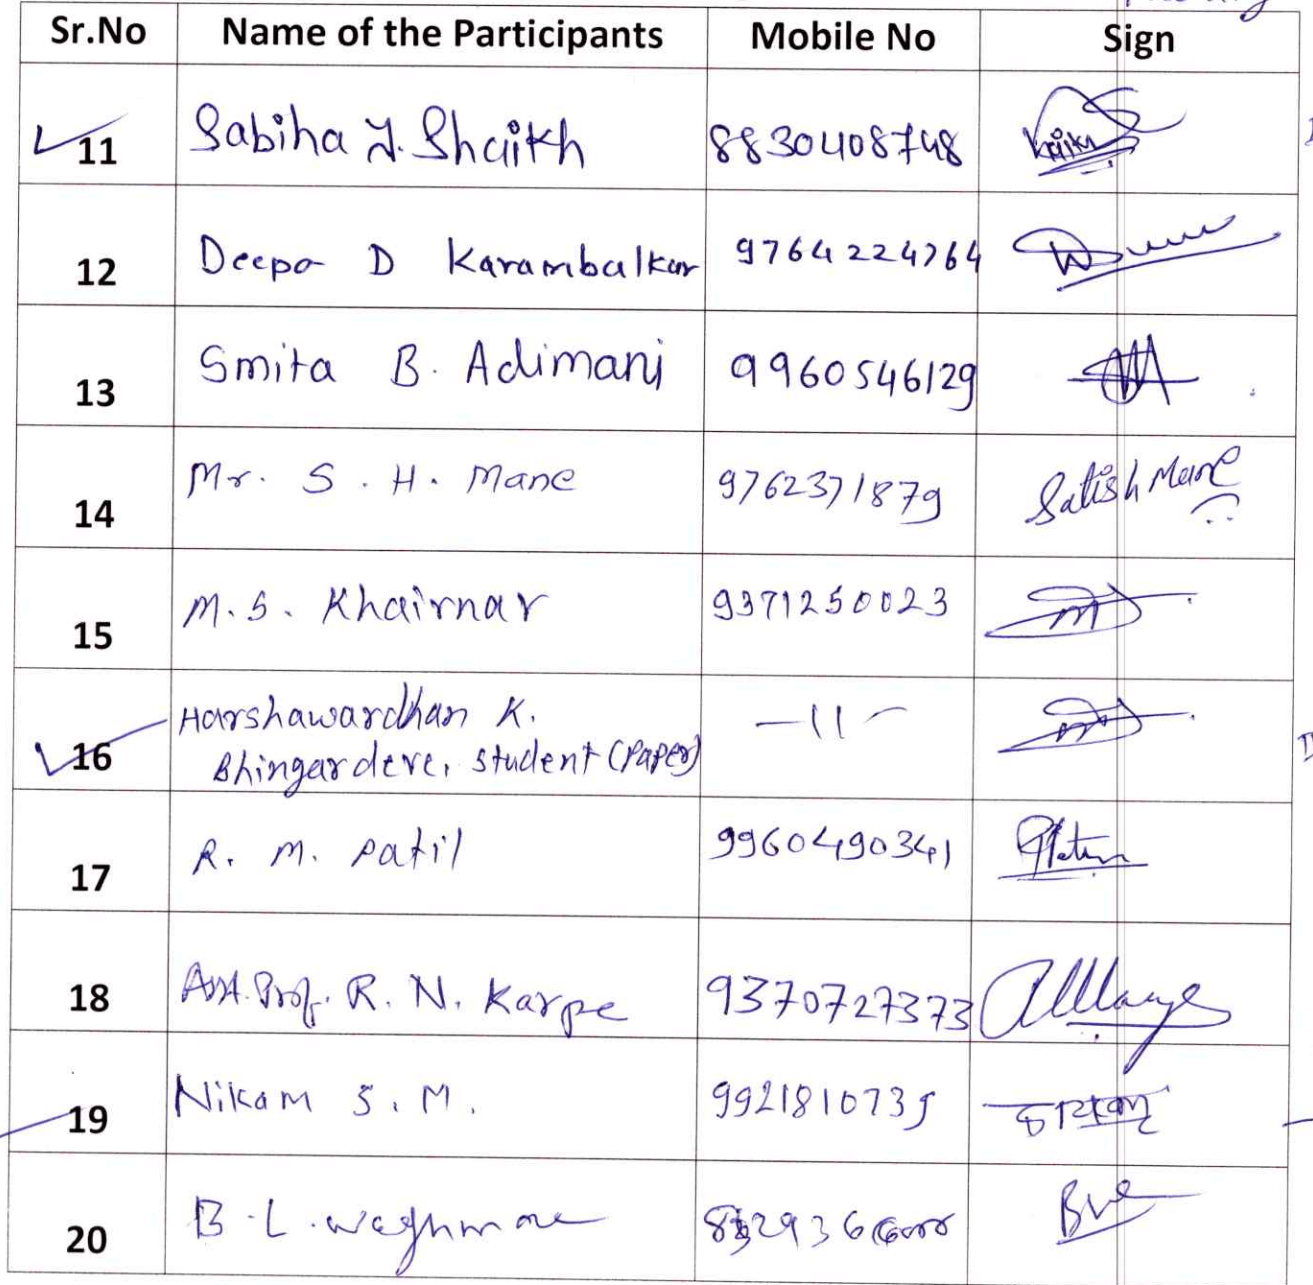 Sr.No Name of the Participants Mobile No Sign
11 Sabiha J. Shaikh 8830408748
12 Deepa D Karambalkar 9764224764
13 Smita B. Adimani 9960546129
14 Mr. S. H. Mane 9762371879 Satish Mane
15 M.S. Khairnar 9371250023
16 Harshawardhan K. —11—
Bhingardeve, student (Paper)
17 R. M. Patil 9960490341
18 Asst. Prof. R. N. Karpe 9370727373
19 Nikam S. M. 9921810739
20 B.L. Waghmare